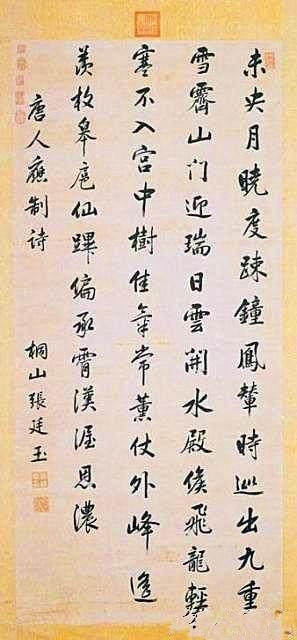 未央月曉度踈鐘鳳輦時巡出九重
雪霽山門迎瑞日雲開水殿候飛龍輕
寒不入宮中樹佳氣常薰仗外峰遙
羨枚皋扈仙蹕偏承霄漢渥恩濃
唐人應制詩
桐山張廷玉